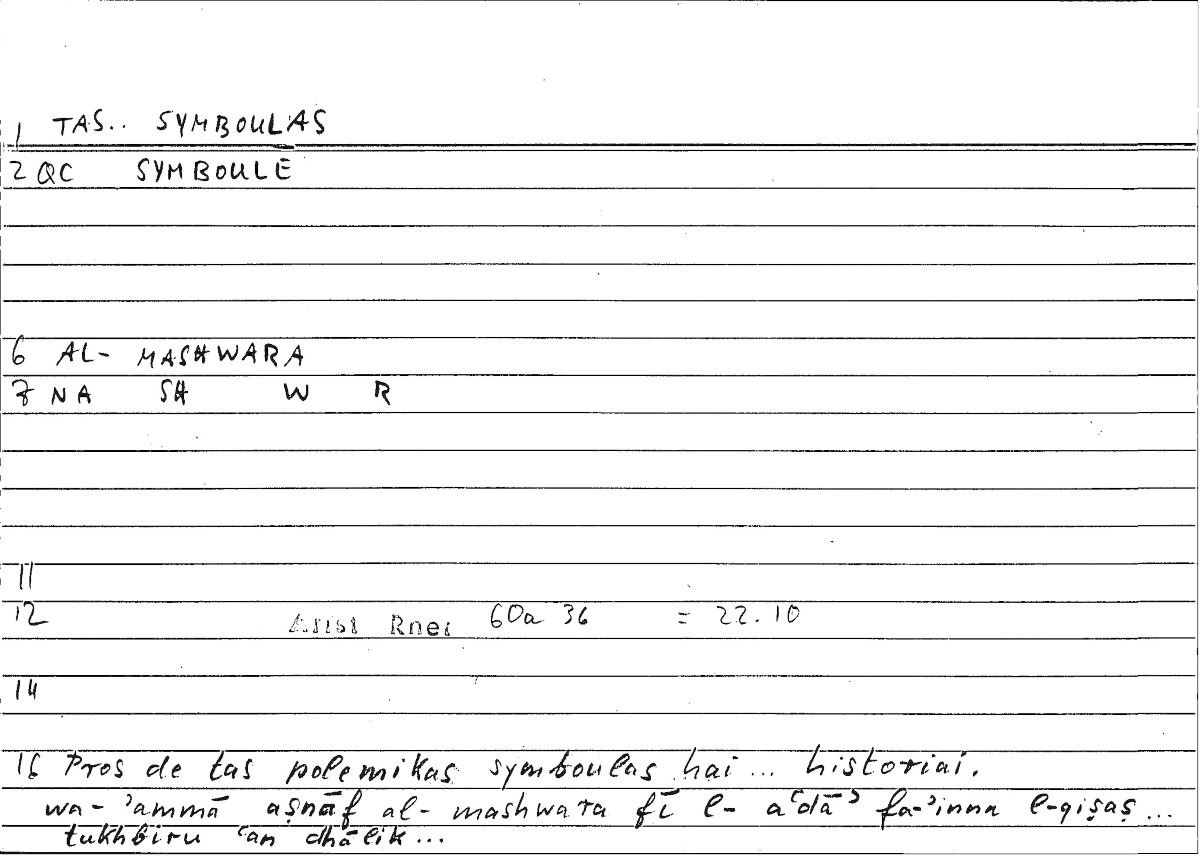 1 TAS.. SYMBOULAS
2 QC SYMBOULĒ
6 AL- MASHWARA
7 NA SH W R
11
12 Arist Rhet 60a 36 = 22.10
14
16 Pros de tas polemikas symboulas hai ... historiai.
wa-ʾammā aṣnāf al-mashwara fī l-aʿdāʾ fa-ʾinna l-qiṣaṣ ...
tukhbiru ʿan dhālik ...